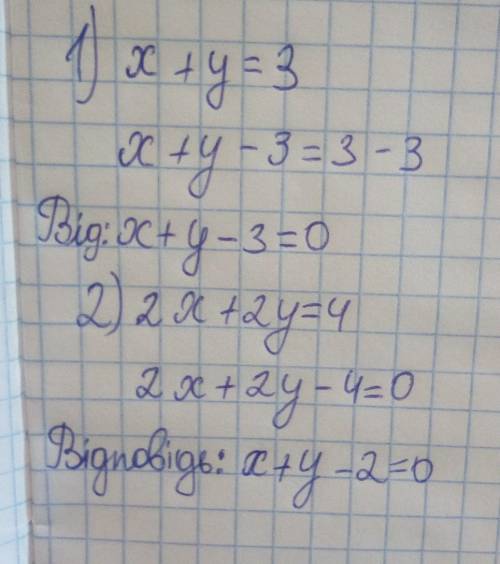 1) x + y = 3
x + y - 3 = 3 - 3
Від: x + y - 3 = 0
2) 2x + 2y = 4
2x + 2y - 4 = 0
Відповідь: x + y - 2 = 0